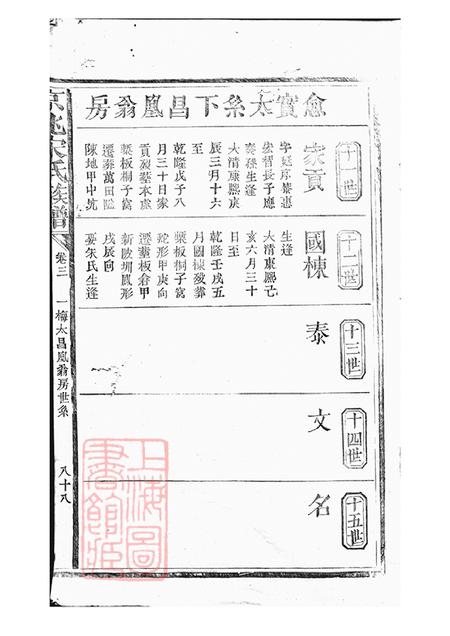 愈寳太系下昌凰翁房
十一世
家貢
字廷序葉惠
宏晉長子應
泰孫生逢
大清康熙庚
辰三月十六
至
乾隆戊子八
月三十日家
貢歿塟本處
粟板桐子窩
遷葬萬田
陳地甲中坑
十二世
國棟
生逢
大清康熙己
亥六月三十
日至
乾隆壬戌五
月國棟歿葬
粟板桐子窩
蛇形甲庚向
遷畫板倉甲
新歐圳鳳形
戌辰向
娶朱氏生逢
十三世
泰
十四世
文
十五世
名
京兆宋氏族譜
卷三
一梅太昌凰翁房世系
八十八
上海圖書館藏